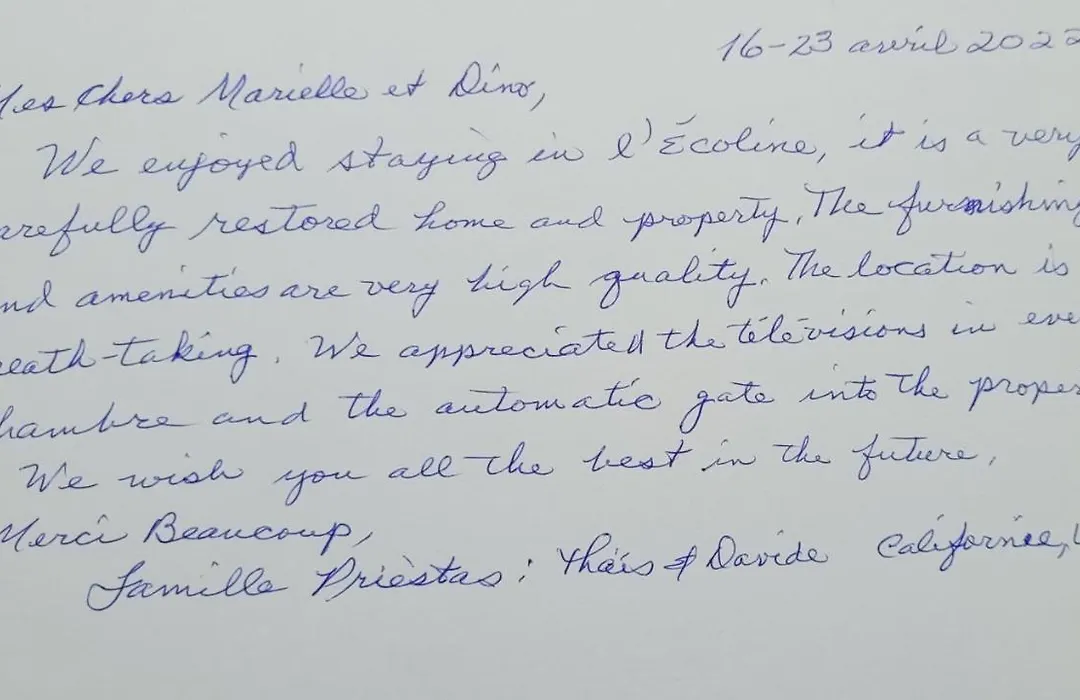 16-23 avril 2022
Mes Chers Marielle et Dino,
We enjoyed staying in l'Écoline, it is a very
arefully restored home and property. The furnishing
nd amenities are very high quality. The location is
reath-taking. We appreciated the télévisions in eve
hambre and the automatic gate into the proper
We wish you all the best in the future,
Merci Beaucoup,
Famille Prièstas : Thaïs & Davide Californie, U